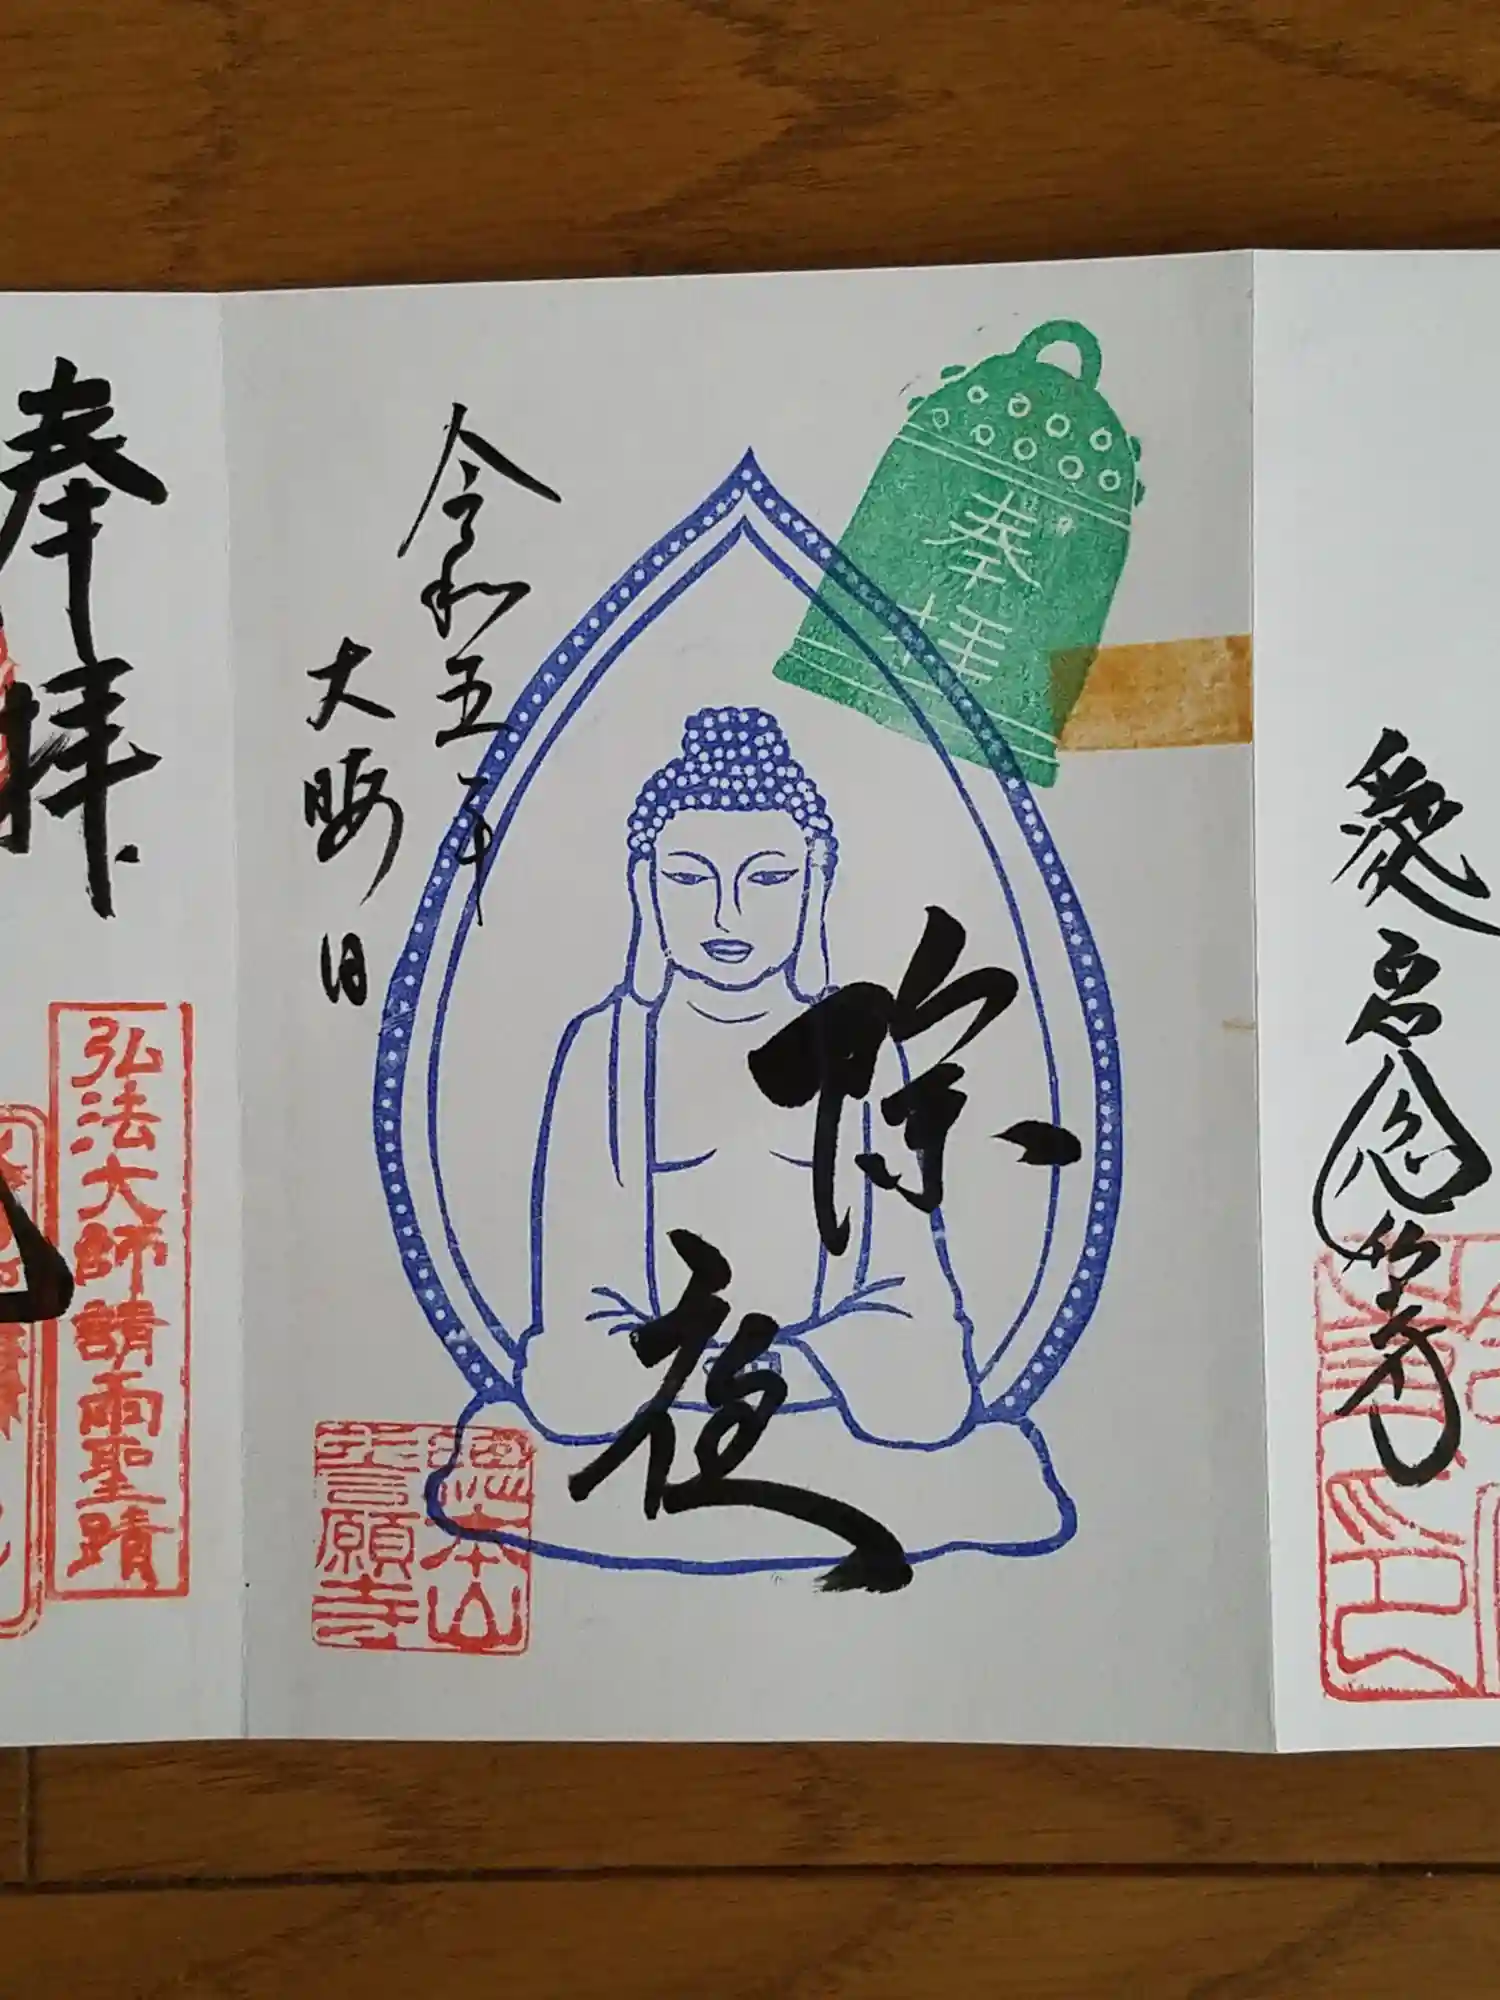 奉拝
除夜
令和五年
大晦日
總本山
誓願寺
愛宕念仏寺
奉拝
弘法大師請雨聖蹟